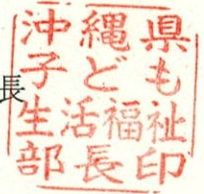 長
沖縄県
子ども
生活福祉
部長印